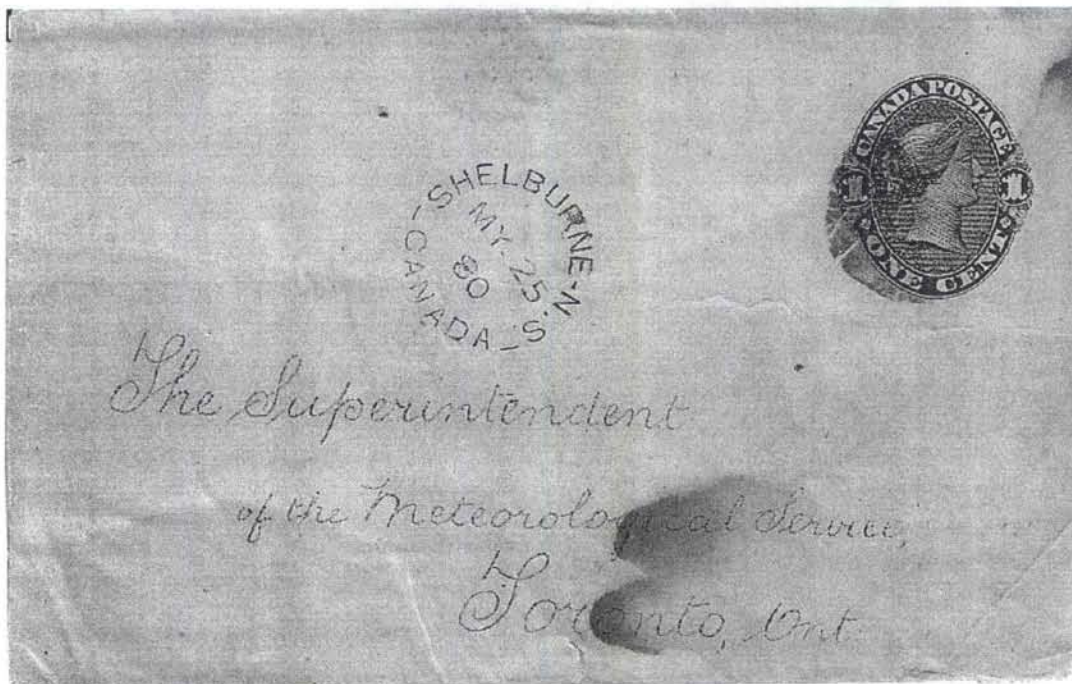 CANADA POSTAGE
1 1
ONE CENT
SHELBURNE-N.S.
MY. 25
80
CANADA
The Superintendent
of the Meteorological Service,
Toronto, Ont.